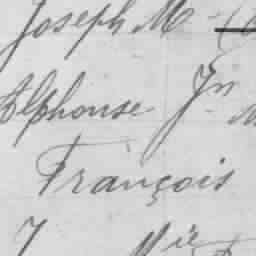 Joseph M
Alphonse Jn
François
Mie